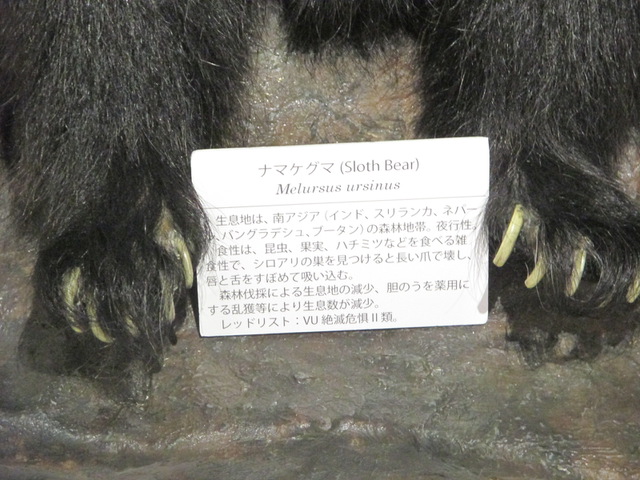 ナマケグマ (Sloth Bear)
Melursus ursinus
生息地は、南アジア（インド、スリランカ、ネパー
、バングラデシュ、ブータン）の森林地帯。夜行性。
食性は、昆虫、果実、ハチミツなどを食べる雑
食性で、シロアリの巣を見つけると長い爪で壊し、
唇と舌をすぼめて吸い込む。
森林伐採による生息地の減少、胆のうを薬用に
する乱獲等により生息数が減少。
レッドリスト：VU 絶滅危惧 II 類。